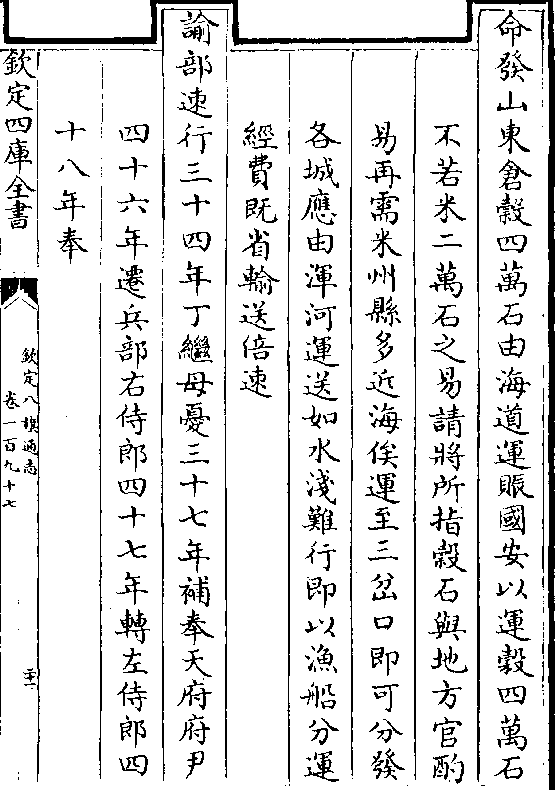 命發山東倉穀四萬石由海道運賑國安以運穀四萬石
不若米二萬石之易請將所指穀石與地方官酌
易再需米州縣多近海俟運至三岔口即可分發
各城應由渾河運送如水淺難行即以漁船分運
經費既省輸送倍速
諭部速行三十四年丁繼母憂三十七年補奉天府府尹
四十六年遷兵部右侍郎四十七年轉左侍郎四
十八年奉
欽定四庫全書
欽定八旗通志
卷一百九十七